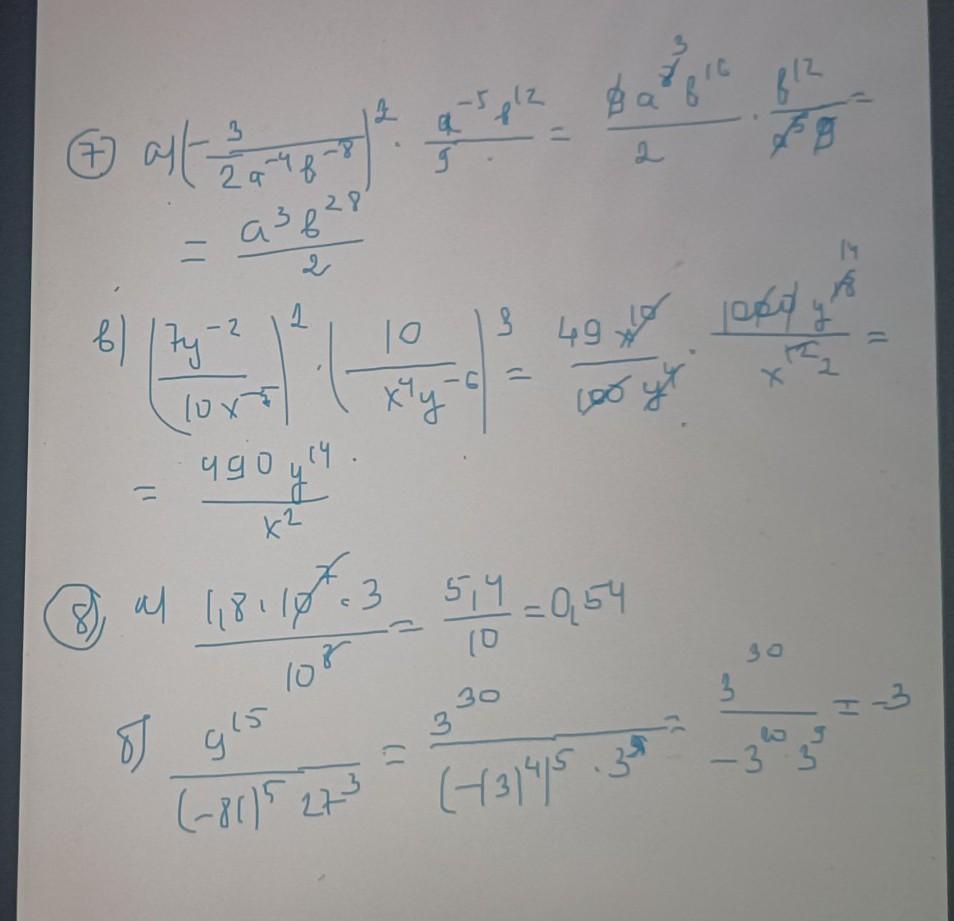 7) а) (-3/(2a^-4 b^-8))^2 · (a^-5 b^12)/9 = (9 a^8 3 b^16)/2 · b^12/(a^5 9) =
= (a^3 b^28)/2
в) (7y^-2/(10x^-5))^2 · (10/(x^4 y^-6))^3 = (49 x^10)/(100 y^4) · (1000 y^18 14)/(x^12 2) =
= (490 y^14)/x^2
8) а) (1,8 · 10^7 · 3)/10^8 = 5,4/10 = 0,54
б) 9^15/((-81)^5 27^3) = 3^30/((-(3)^4)^5 · 3^9) = 3^30/(-3^20 · 3^9) = -3